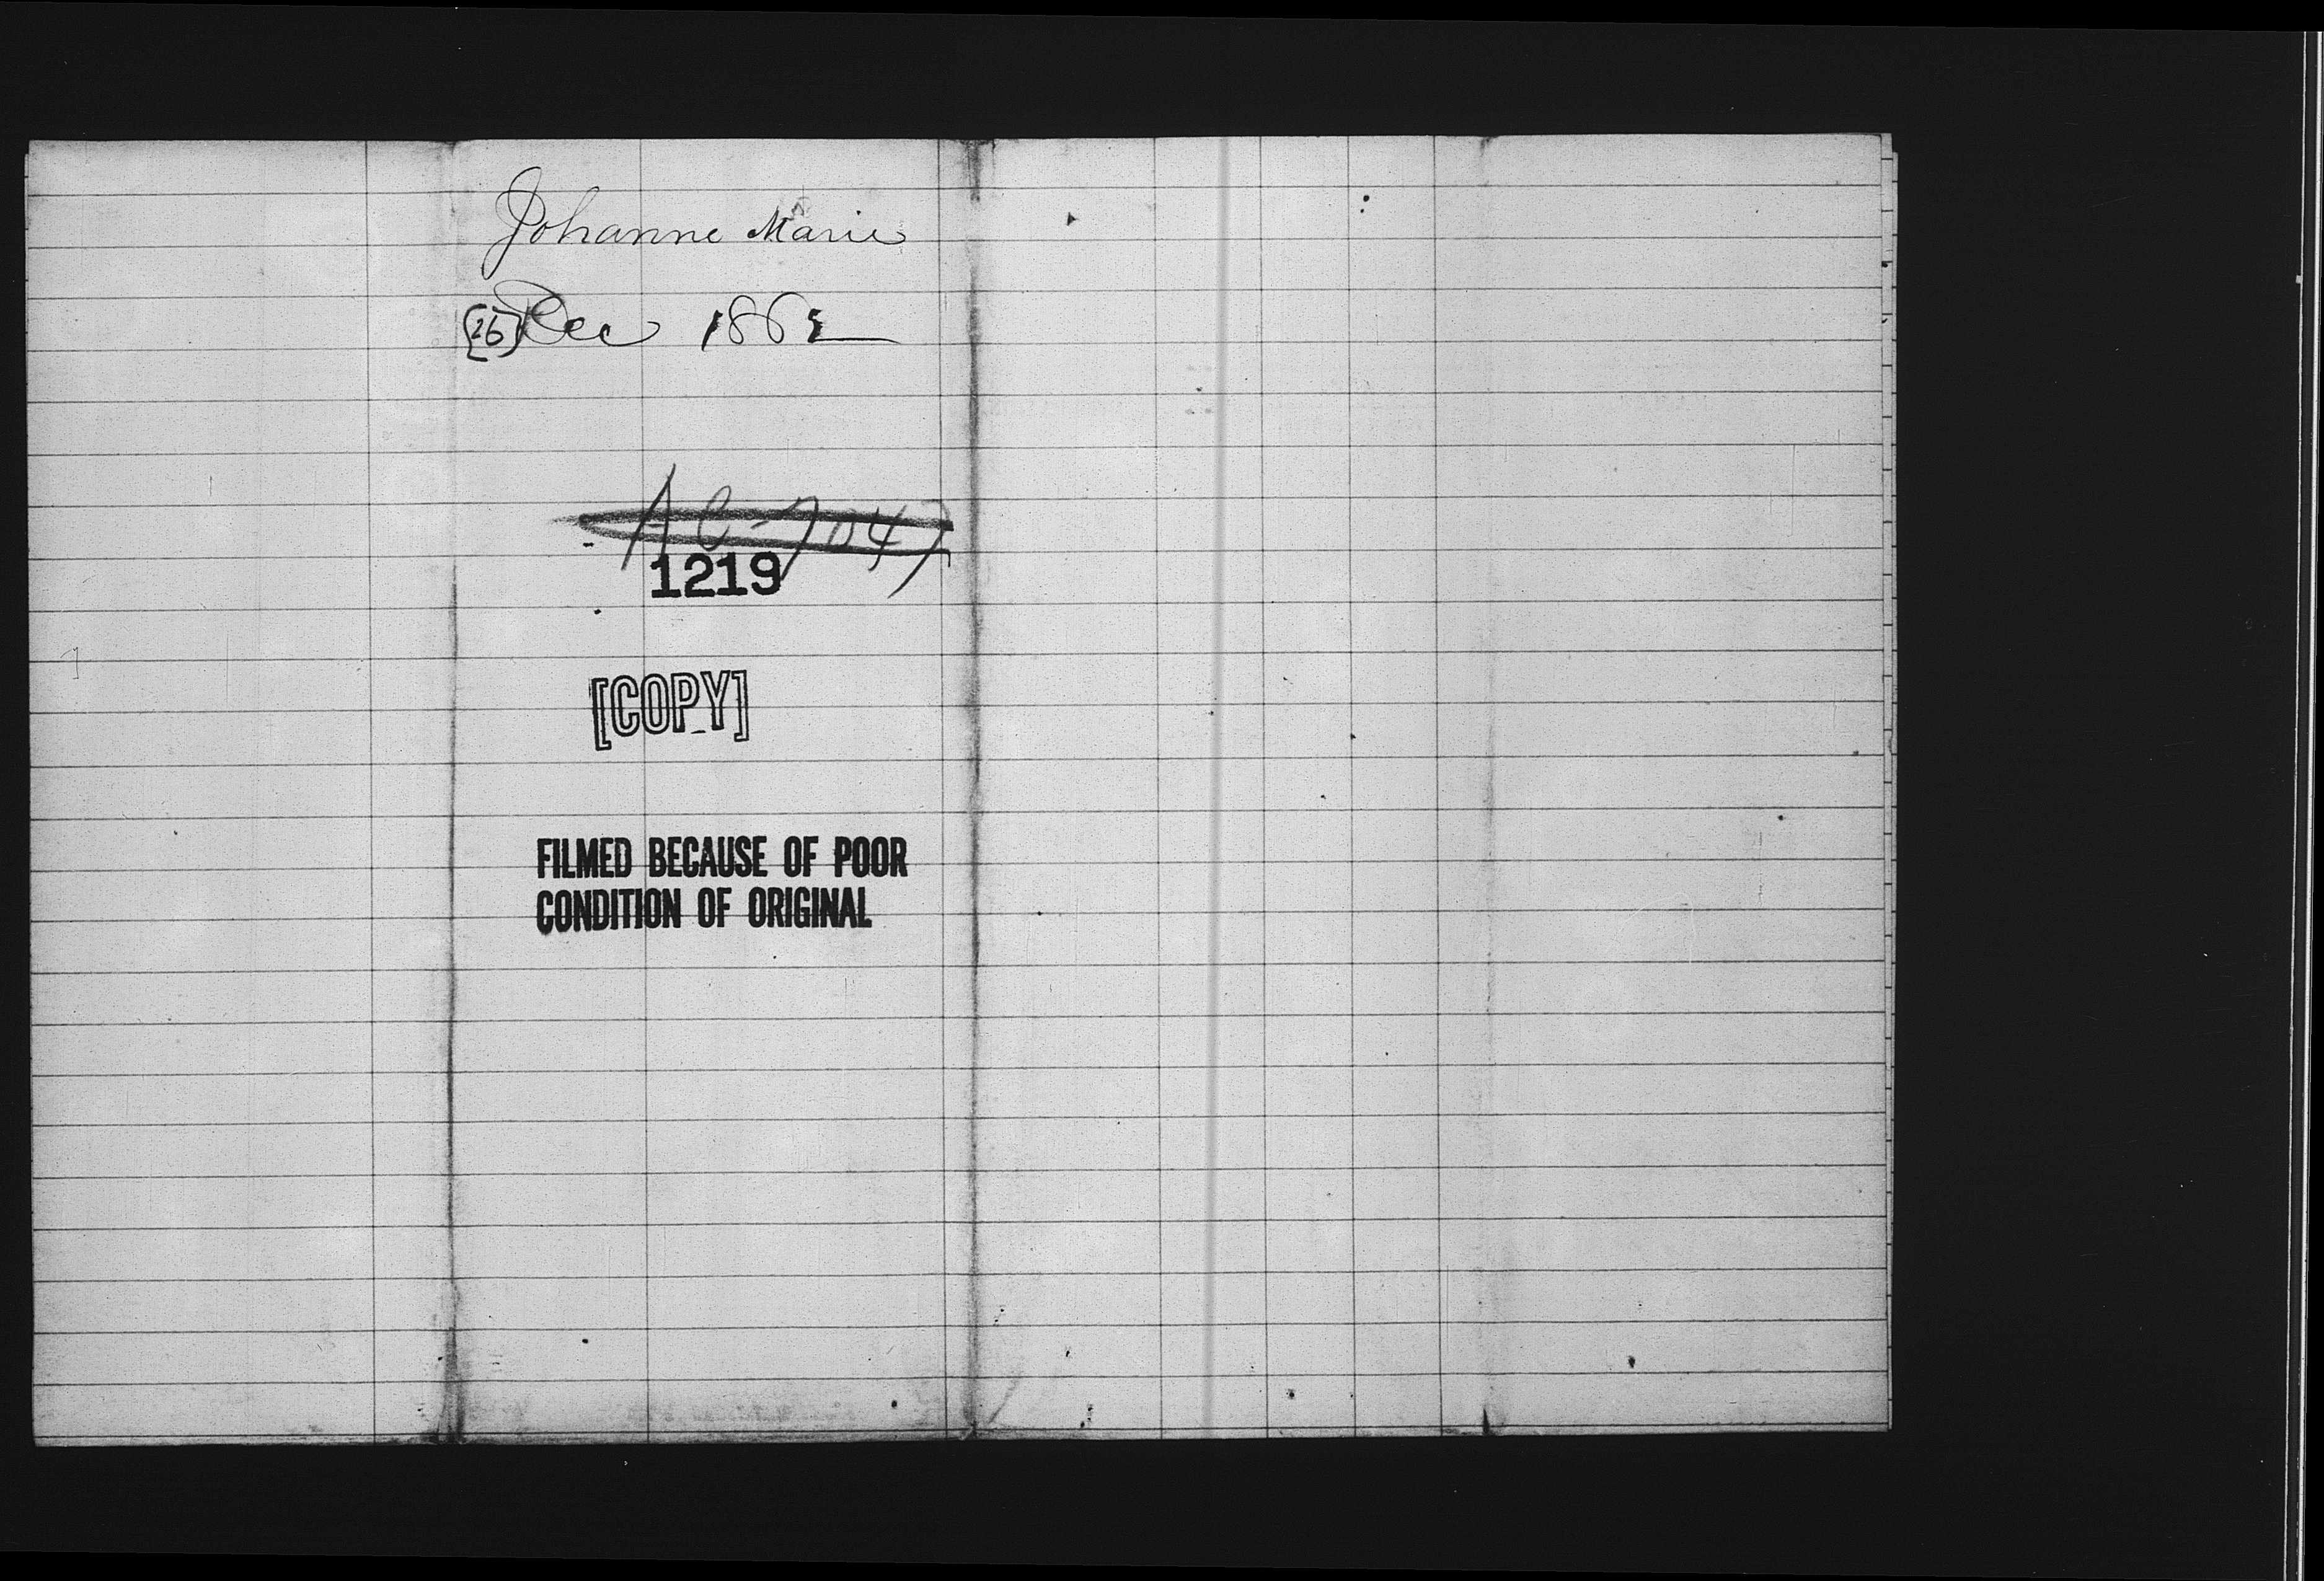 Johanne Marie
(26) Dec 1862
AC-7047
1219
[COPY]
FILMED BECAUSE OF POOR
CONDITION OF ORIGINAL